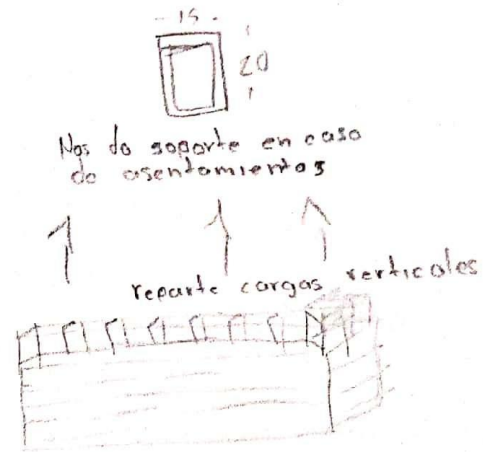 15
20
Nos da soporte en caso
de asentamientos
reparte cargas verticales